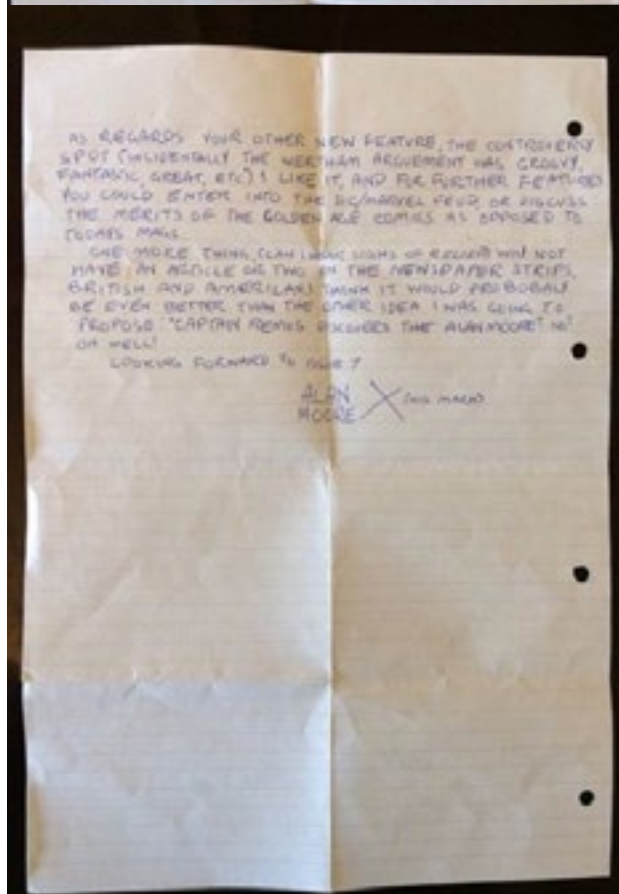 AS REGARDS YOUR OTHER NEW FEATURE, THE CONTROVERSY
SPOT (INCIDENTALLY THE WERTHAM ARGUEMENT WAS GROOVY,
FANTASTIC, GREAT, ETC) I LIKE IT, AND FOR FURTHER FEATURES
YOU COULD ENTER INTO THE DC/MARVEL FEUD, OR DISCUSS
THE MERITS OF THE GOLDEN AGE COMICS AS OPPOSED TO
TODAYS MAGS.
ONE MORE THING, (CAN I HEAR SIGHS OF RELIEF?) WHY NOT
HAVE AN ARTICLE OR TWO ON THE NEWSPAPER STRIPS,
BRITISH AND AMERICAN I THINK IT WOULD PROBOBALY
BE EVEN BETTER THAN THE OTHER IDEA I WAS GOING TO
PROPOSE "CAPTAIN REMUS DISCOVERS THE ALAN MOORE" NO?
OH WELL!
LOOKING FORWARD TO ISSUE 7
ALAN
MOORE X (HIS MARK)